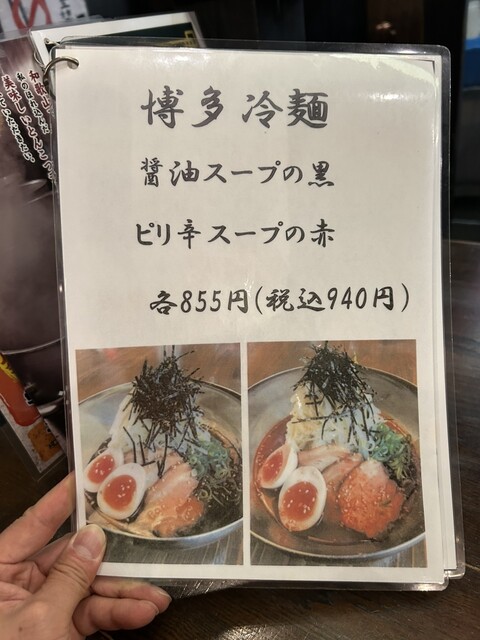 博多冷麺
醤油スープの黒
ピリ辛スープの赤
各855円(税込940円)